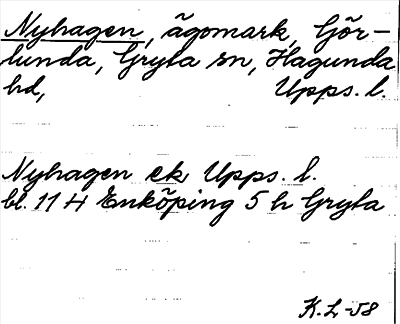 Nyhagen, ägomark, Gör-
lunda, Gryta sn, Hagunda
hd, Upps. l.
Nyhagen ek Upps. l.
bl. 11 H Enköping 5 h Gryta
K.L-58